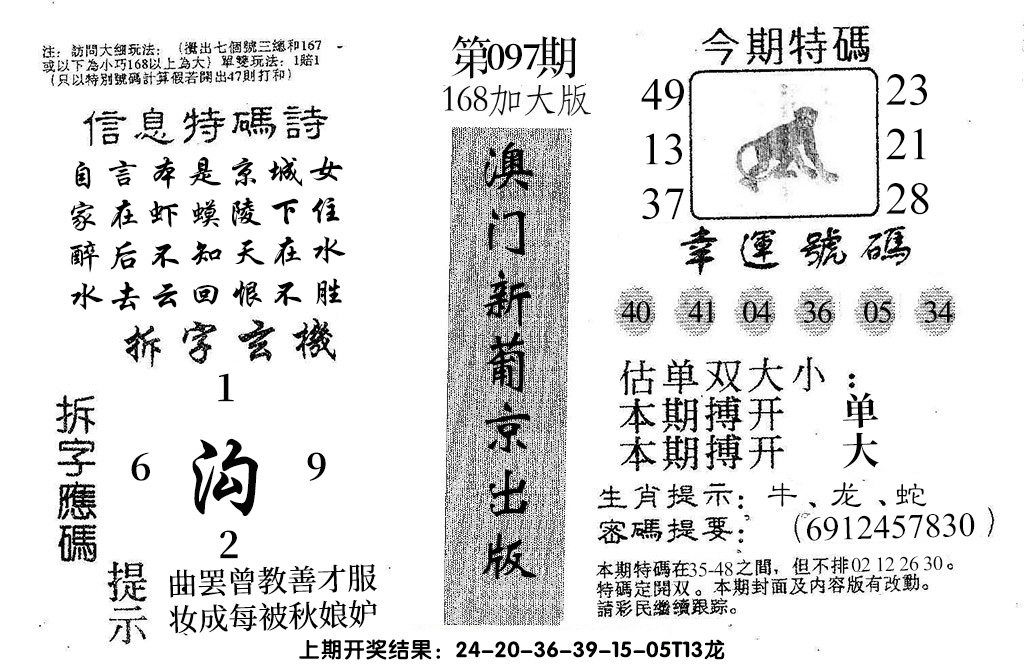 注：訪問大细玩法：（攪出七個號三總和167
或以下為小巧168以上為大）單雙玩法：1賠1
（只以特別號碼計算假若開出47則打和）
信息特碼詩
自言本是京城女
家在虾蟆陵下住
醉后不知天在水
水去云回恨不胜
拆字玄機
拆字應碼
1
6 沟 9
2
提示
曲罢曾教善才服
妆成每被秋娘妒
第097期
168加大版
澳门新葡京出版
今期特碼
49 23
13 21
37 28
幸運號碼
40 41 04 36 05 34
估单双大小：
本期搏开 单
本期搏开 大
生肖提示：牛、龙、蛇
密碼提要：（6912457830）
本期特碼在35-48之間，但不排02 12 26 30。
特碼定開双。本期封面及内容版有改動。
請彩民繼續跟踪。
上期开奖结果：24-20-36-39-15-05T13龙